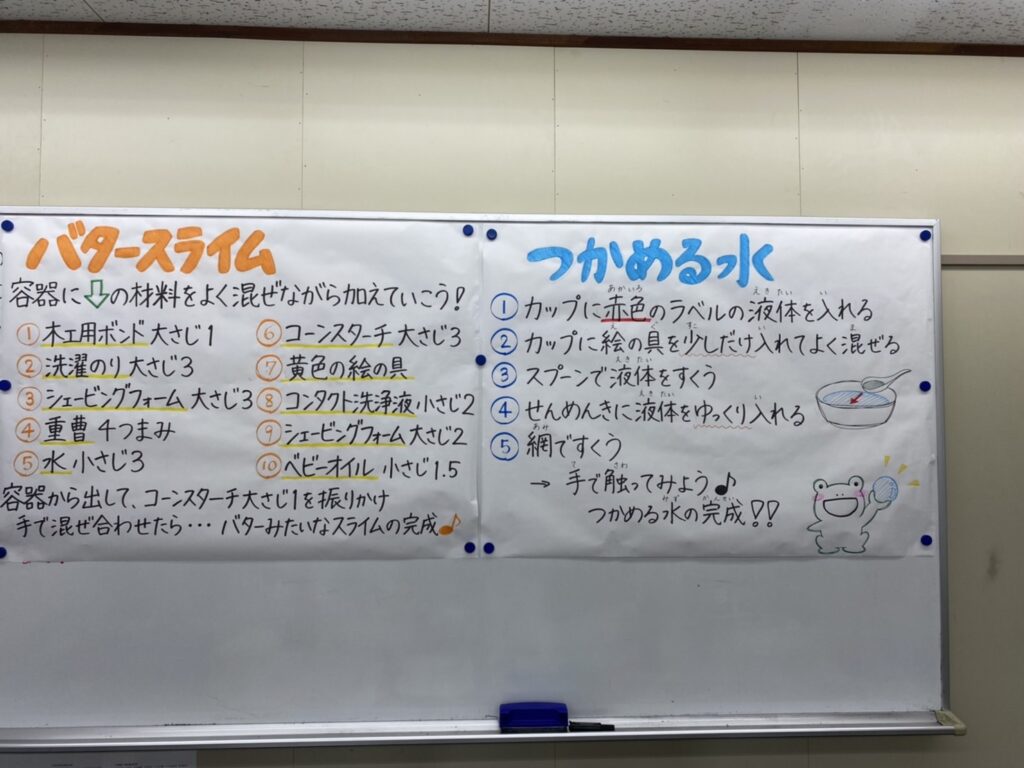 バタースライム
容器に↓の材料をよく混ぜながら加えていこう!
① 木工用ボンド 大さじ1
② 洗濯のり 大さじ3
③ シェービングフォーム 大さじ3
④ 重曹 4つまみ
⑤ 水 小さじ3
⑥ コーンスターチ 大さじ3
⑦ 黄色の絵の具
⑧ コンタクト洗浄液 小さじ2
⑨ シェービングフォーム 大さじ2
⑩ ベビーオイル 小さじ1.5
容器から出して、コーンスターチ大さじ1を振りかけ
手で混ぜ合わせたら… バターみたいなスライムの完成♪
つかめる水
あかいろ えきたい い
① カップに赤色のラベルの液体を入れる
え ぐ すこ い ま
② カップに絵の具を少しだけ入れてよく混ぜる
えきたい
③ スプーンで液体をすくう
えきたい い
④ せんめんきに液体をゆっくり入れる
あみ
⑤ 網ですくう
て さわ
→ 手で触ってみよう♪
みず かんせい
つかめる水の完成!!